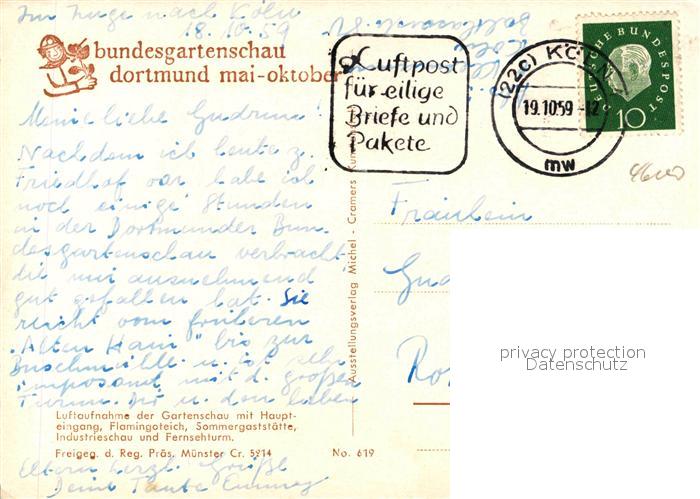 Im Zuge nach Köln
18.10.59
bundesgartenschau
dortmund mai-oktober
Luftpost
für eilige
Briefe und
Pakete
(22c) KÖLN
19.10.59 -12
mw
DEUTSCHE BUNDESPOST
10
Meine liebe Gudrun!
Nachdem ich heute z.
Friedhof war, habe ich
noch einige Stunden
in der Dortmunder Bun-
desgartenschau verbracht
die mir ausnehmend
gut gefallen hat. Sie
reicht vom früheren
"Alten Hain" bis zur
Buschmühle u. ist sehr
imposant mit d. großen
Turm. Dir u. den lieben
Eltern herzl. Grüße
Deine Tante
Ausstellungsverlag Michel - Cramers
Fräulein
Gud
Ro
privacy protection
Datenschutz
Luftaufnahme der Gartenschau mit Haupt-
eingang, Flamingoteich, Sommergaststätte,
Industrieschau und Fernsehturm.
Freigeg. d. Reg. Präs. Münster Cr. 5214 No. 619